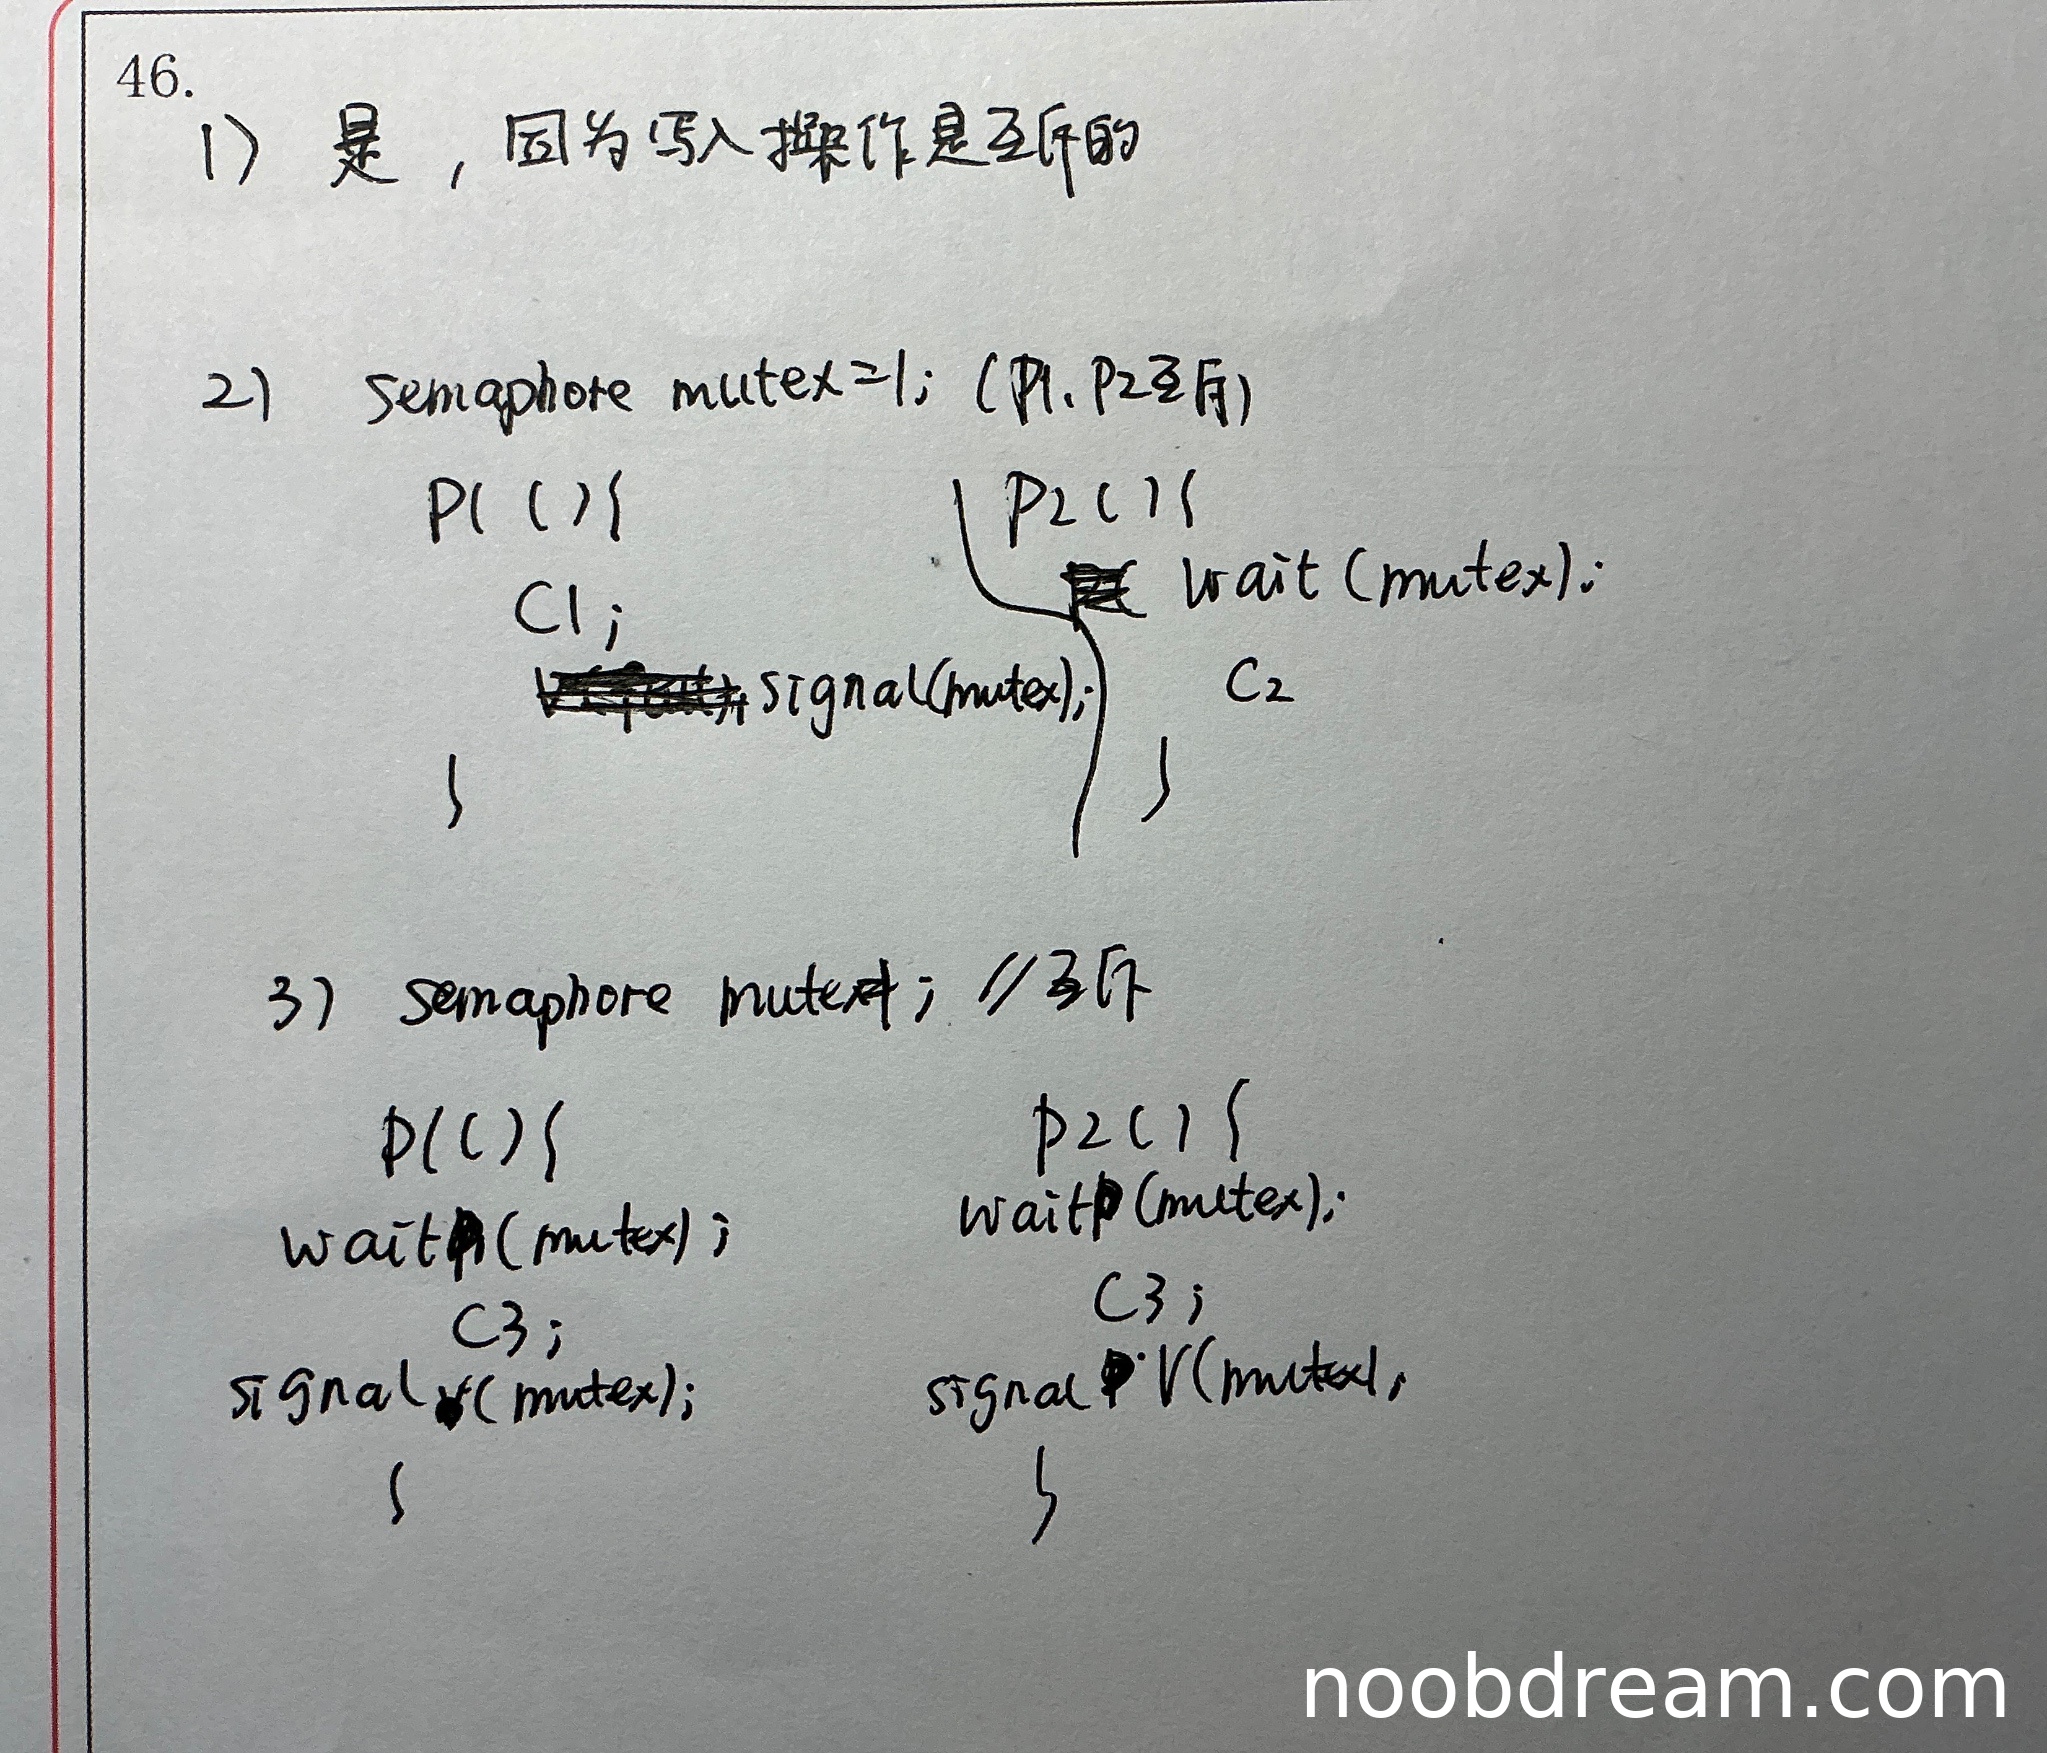 46.
1) 是，因为写入操作是互斥的
2) semaphore mutex=1; (P1、P2互斥)
P1 () {
C1;
signal(mutex);
}
P2 () {
wait (mutex);
C2
}
3) semaphore mutex=1; //互斥
P1() {
wait (mutex);
C3;
signal (mutex);
}
P2() {
wait (mutex);
C3;
signal V(mutex);
}
noobdream.com